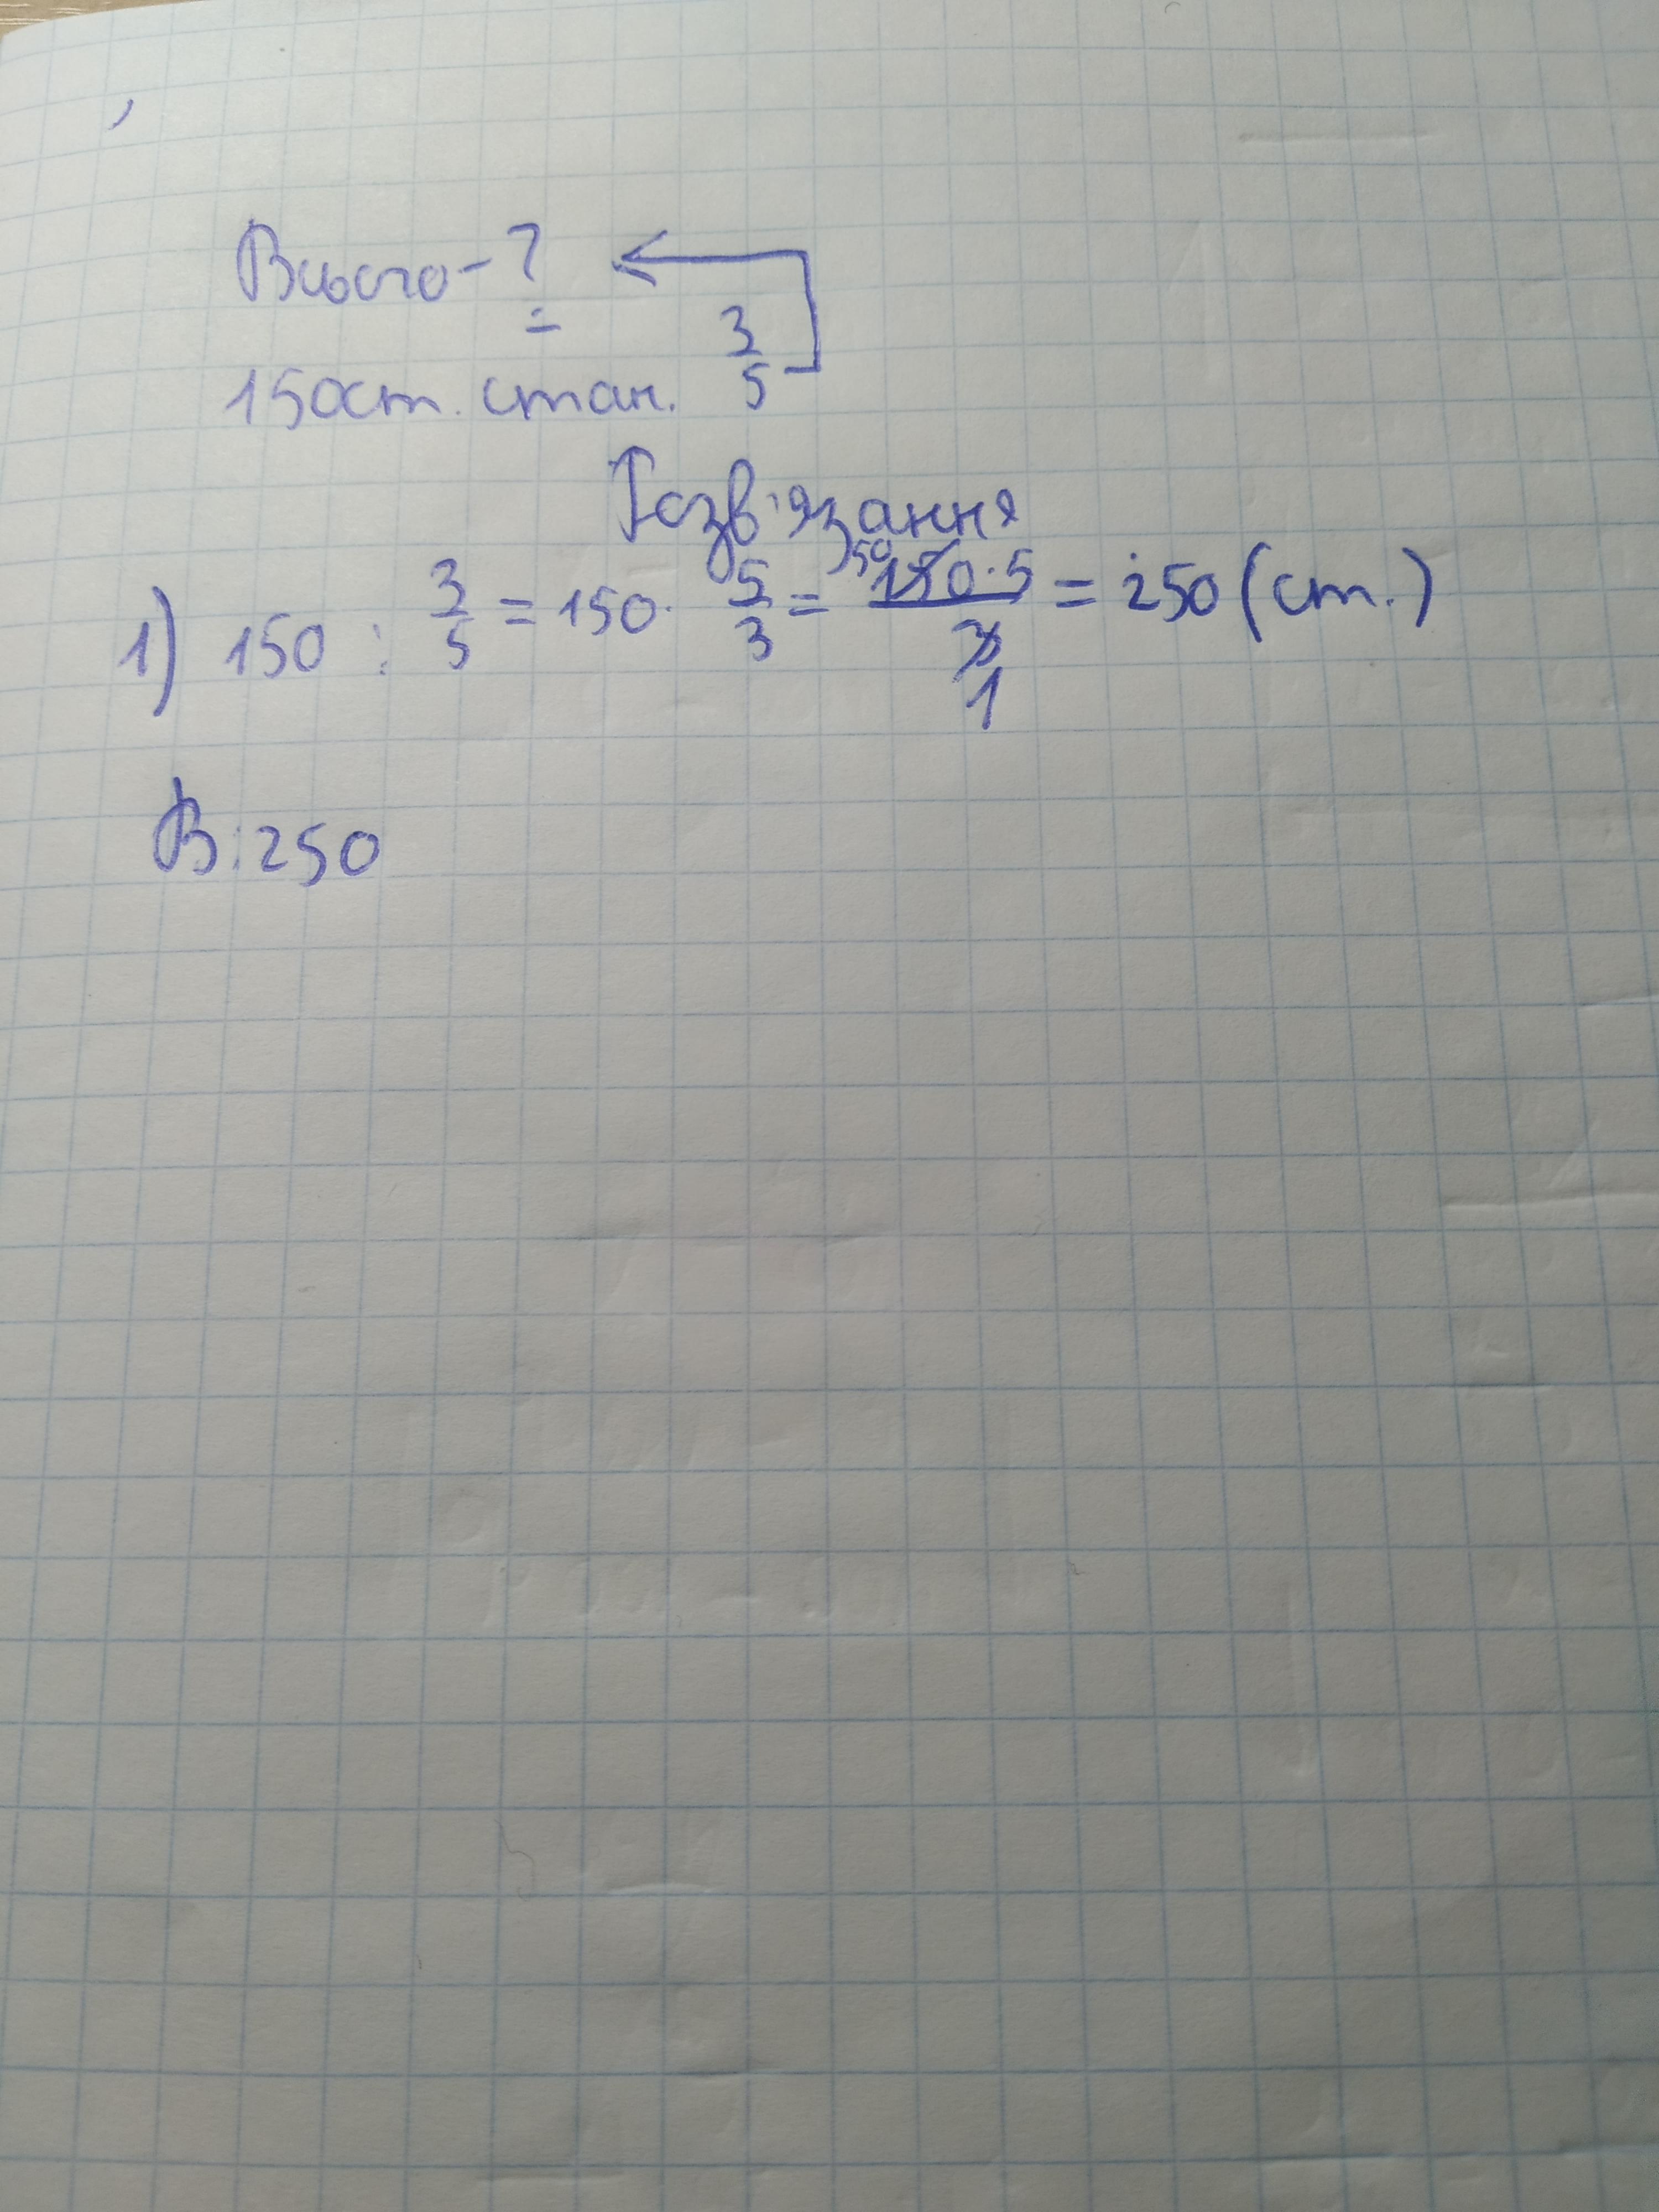 Всього - ?
150 ст. стан. 3/5
Розв'язання
1) 150 : 3/5 = 150 · 5/3 = 150 · 5 / 3 = 250 (ст.)
50
1
В: 250